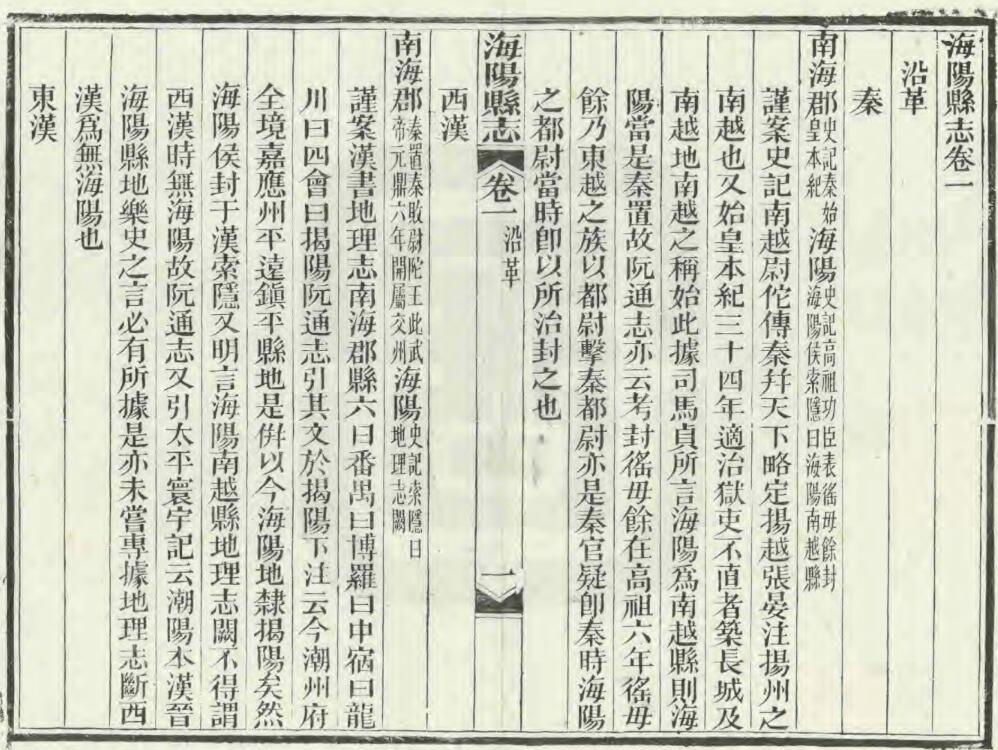 海陽縣志卷一
沿革
秦
南海郡史記秦始皇本紀海陽史記高祖功臣表徭毋餘封海陽侯索隱曰海陽南越縣
謹案史記南越尉佗傳秦幷天下略定揚越張晏注揚州之
南越也又始皇本紀三十四年適治獄吏不直者築長城及
南越地南越之稱始此據司馬貞所言海陽爲南越縣則海
陽當是秦置故阮通志亦云考封徭毋餘在高祖六年徭毋
餘乃東越之族以都尉擊秦都尉亦是秦官疑卽秦時海陽
之都尉當時卽以所治封之也
海陽縣志
卷一
沿革
一
西漢
南海郡秦置秦敗尉陀王此武帝元鼎六年開屬交州海陽史記索隱曰地理志闕
謹案漢書地理志南海郡縣六曰番禺曰博羅曰中宿曰龍
川曰四會曰揭陽阮通志引其文於揭陽下注云今潮州府
全境嘉應州平遠鎮平縣地是倂以今海陽地隸揭陽矣然
海陽侯封于漢索隱又明言海陽南越縣地理志闕不得謂
西漢時無海陽故阮通志又引太平寰宇記云潮陽本漢晉
海陽縣地樂史之言必有所據是亦未嘗專據地理志斷西
漢爲無海陽也
東漢